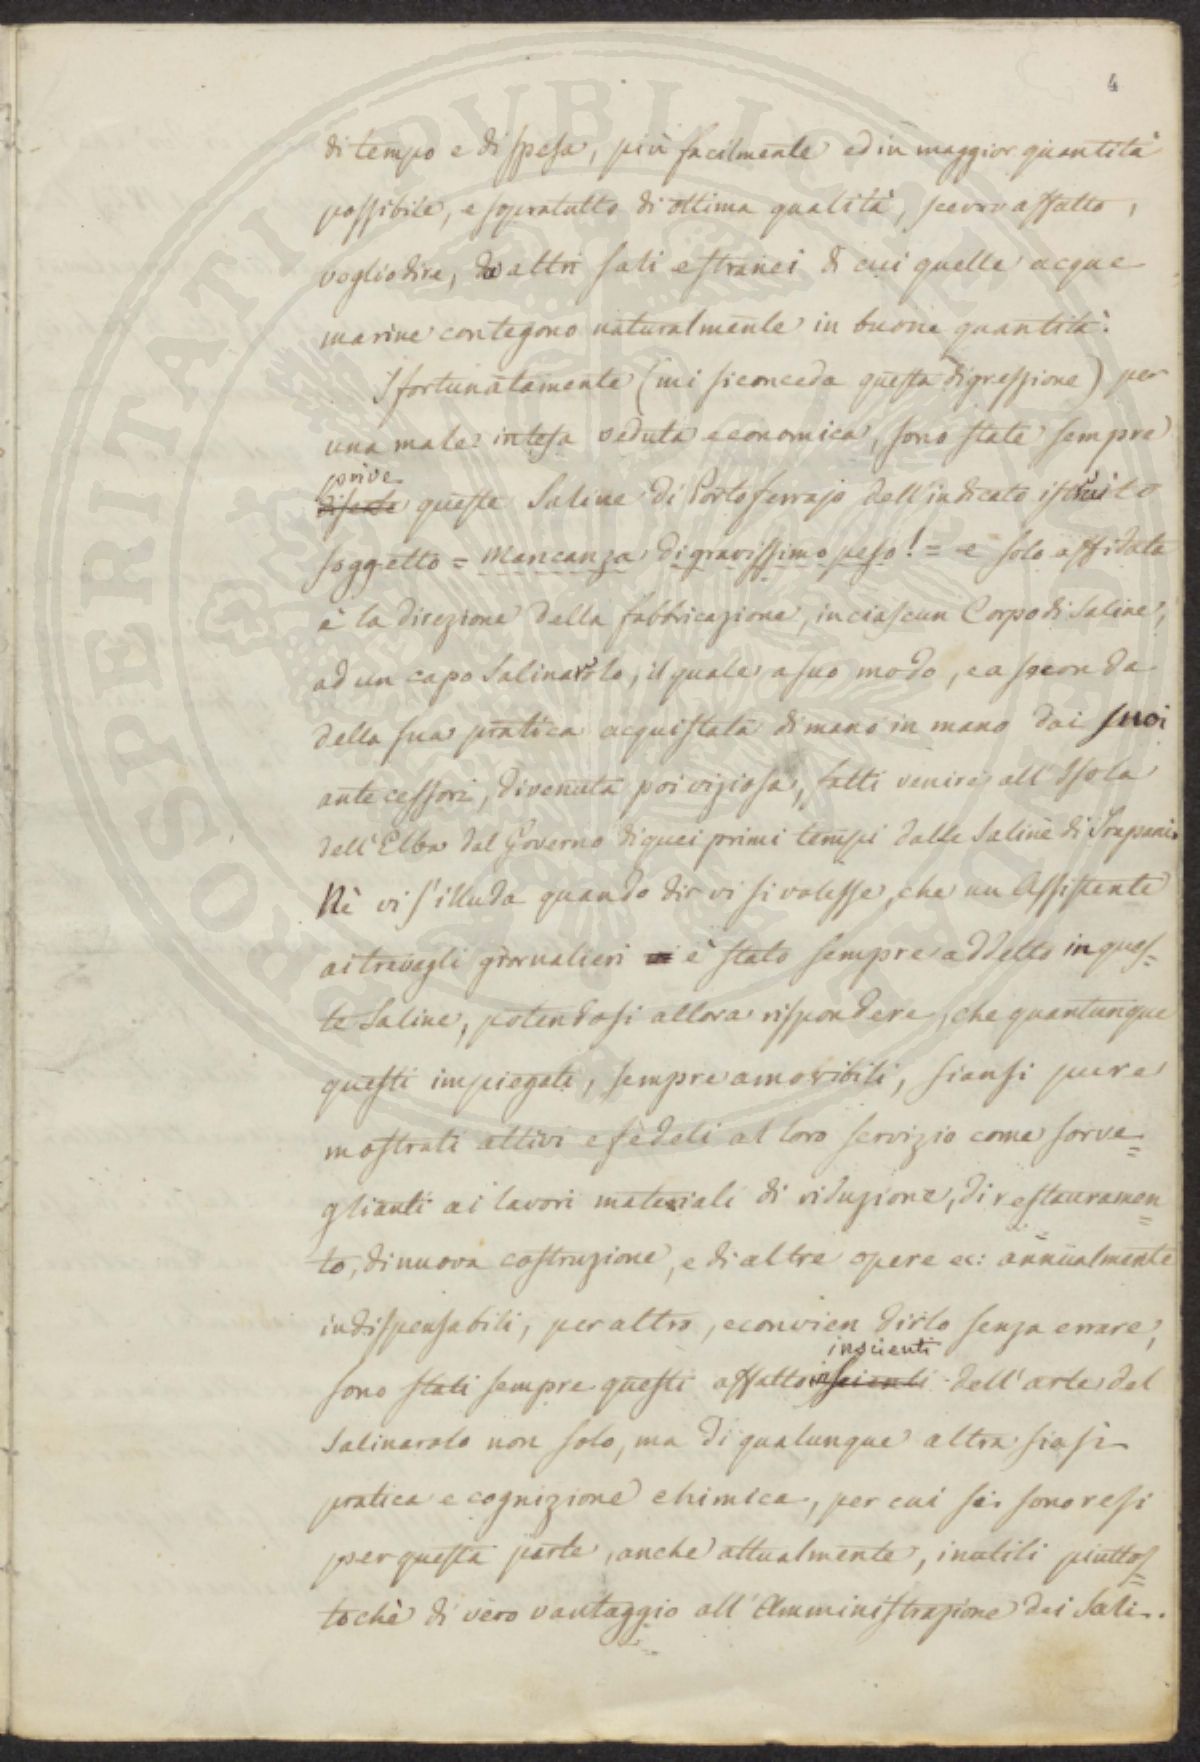 4
di tempo e di spesa, più facilmente ed in maggior quantità
possibile, e sopratutto di ottima qualità, scevro affatto,
voglio dire, da altri sali estranei di cui quelle acque
marine contegono naturalmente in buone quantità.
Sfortunatamente (mi si conceda questa digressione) per
una male intesa veduta economica, sono state sempre
prive
queste Saline di Portoferrajo dell'indicato istruito
soggetto = mancanza di gravissimo peso! = e solo affidata
è la direzione della fabbricazione, in ciascun Corpo di Saline,
ad un capo Salinarolo, il quale a suo modo, e a seconda
della sua pratica acquistata di mano in mano dai suoi
antecessori, divenuta poi viziosa, fatti venire all'Isola
dell'Elba dal Governo di quei primi tempi dalle Saline di Trapani.
Nè vi s'illuda quando dir vi si volesse, che un Assistente
ai travagli giornalieri è stato sempre addetto in ques=
te Saline, potendosi allora rispondere, che quantunque
questi impiegati, sempre amovibili, siansi pure
mostrati attivi e fedeli al loro servizio come sorve=
glianti ai lavori materiali di riduzione, di restauramen=
to, di nuova costruzione, e di altre opere ec: annualmente
indispensabili, per altro, e convien dirlo senza errare,
inscienti
sono stati sempre questi affatto inscienti dell'arte del
Salinarolo non solo, ma di qualunque altra siasi
pratica e cognizione chimica, per cui si sono resi
per questa parte, anche attualmente, inutili piuttos=
tochè di vero vantaggio all'Amministrazione dei Sali.
PROSPERITATI PUBLICAE